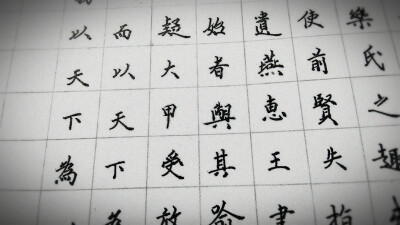 樂氏之趣
使前賢失指
遺燕惠王書
始者與其喻
疑大甲受放
而以天下為
以天下為